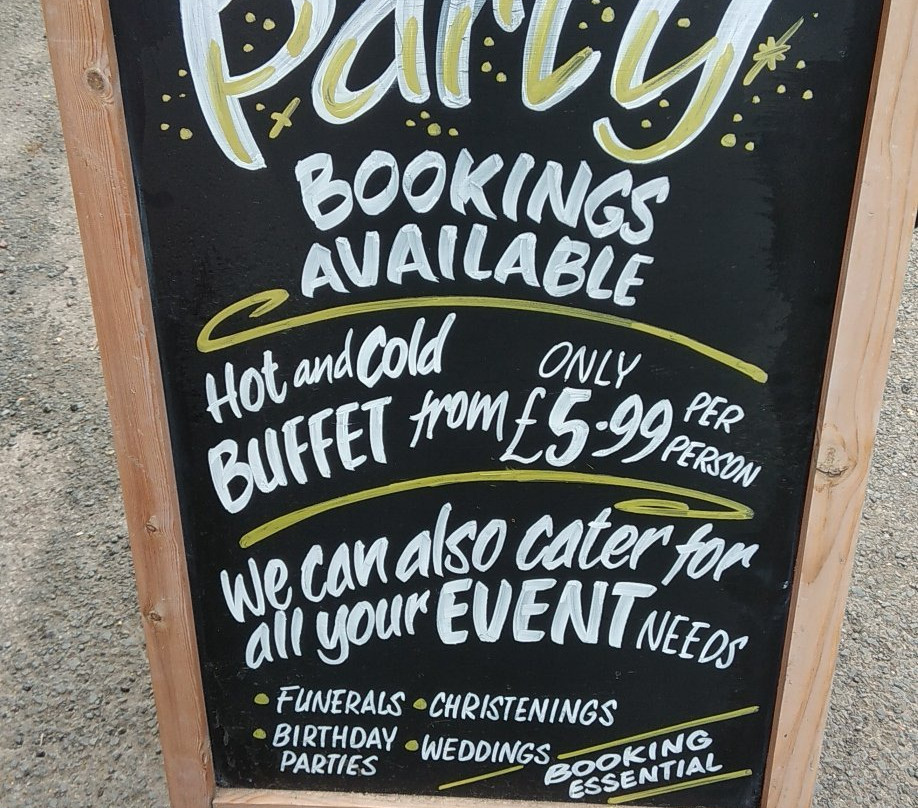 Party
BOOKINGS
AVAILABLE
Hot and Cold
BUFFET from ONLY £5.99 PER PERSON
We can also cater for
all your EVENT NEEDS
• FUNERALS • CHRISTENINGS
• BIRTHDAY PARTIES • WEDDINGS
BOOKING
ESSENTIAL